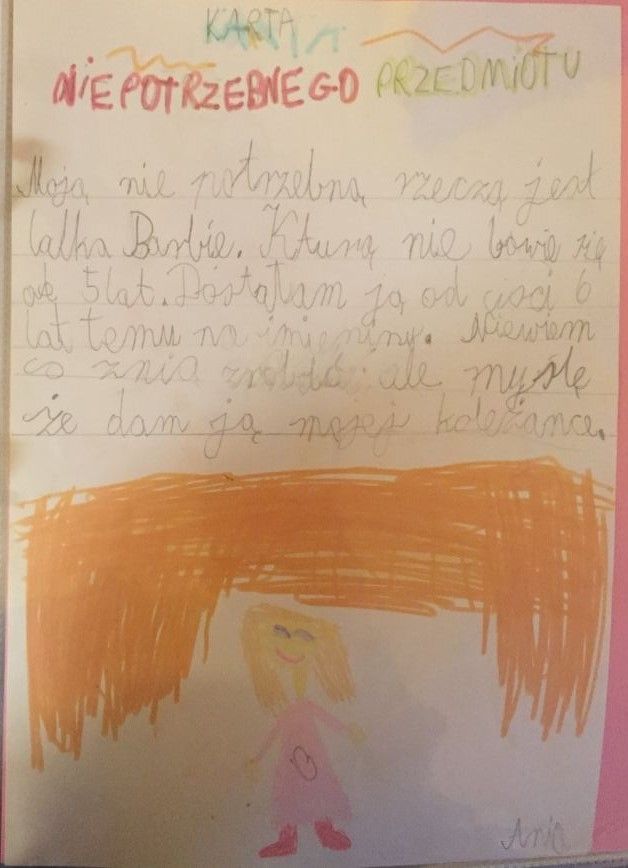 KARTA
NIEPOTRZEBNEGO PRZEDMIOTU
Moją nie potrzebną rzeczą jest
lalka Barbie. Kturą nie bawię się
od 5 lat. Dostałam ją od cioci 6
lat temu na imieniny. Niewiem
co znią zrobić ale myślę
że dam ją mojej koleżance.
B
Ania